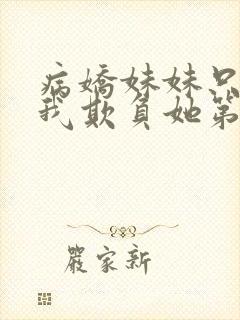 病嬌妹妹只
我欺負她第
嚴家新